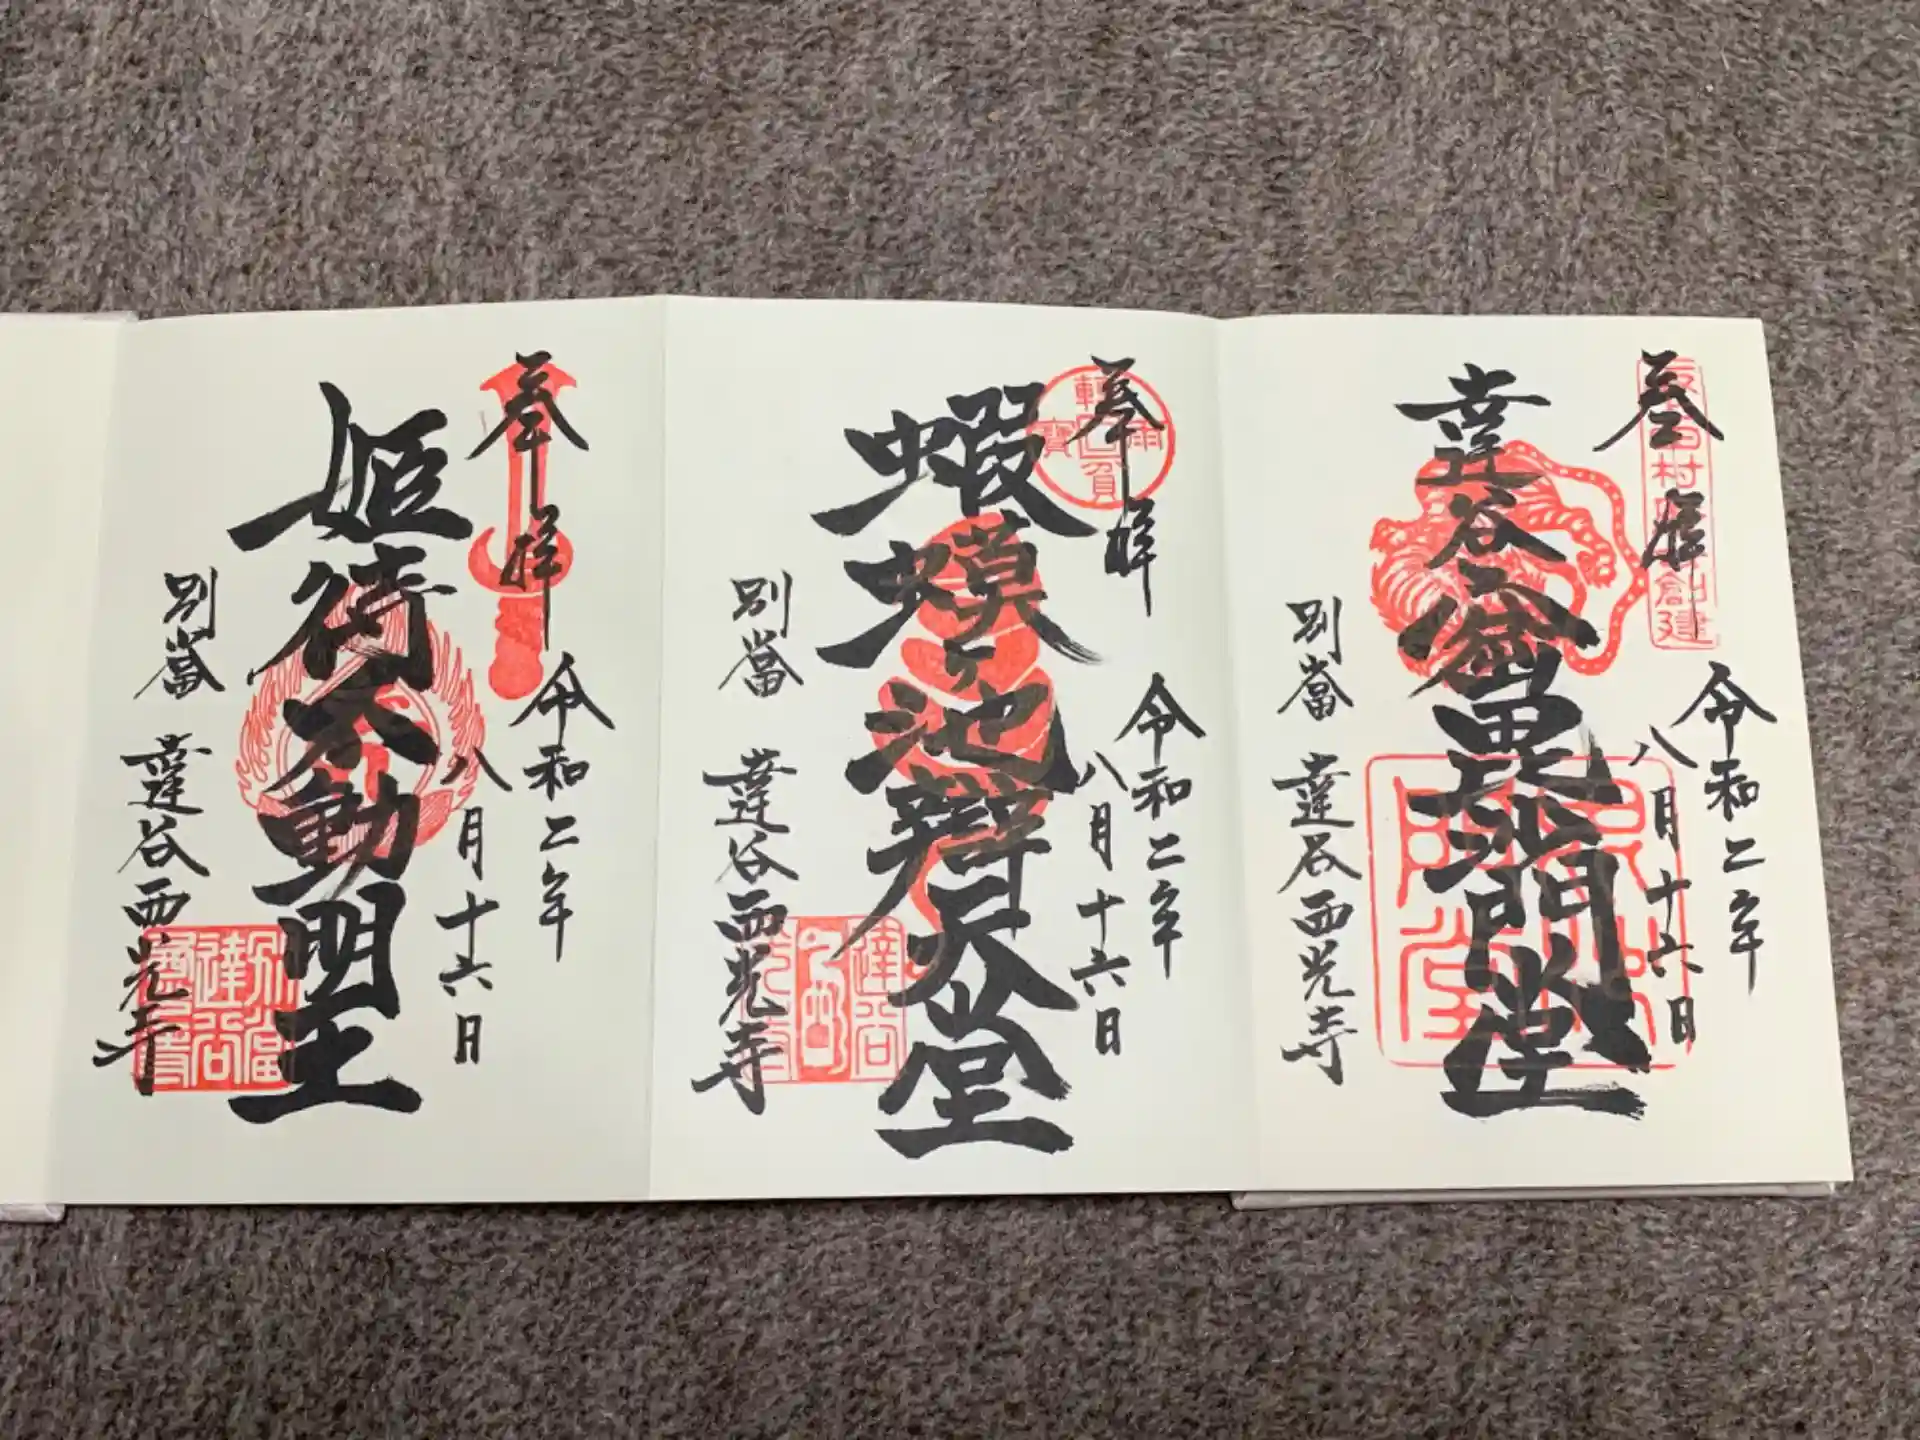 奉拝
令和二年
八月十六日
達谷窟毘沙門堂
別當 達谷西光寺
奉拝
令和二年
八月十六日
蝦蟇ヶ池辯天堂
別當 達谷西光寺
奉拝
令和二年
八月十六日
姫待不動明王
別當 達谷西光寺